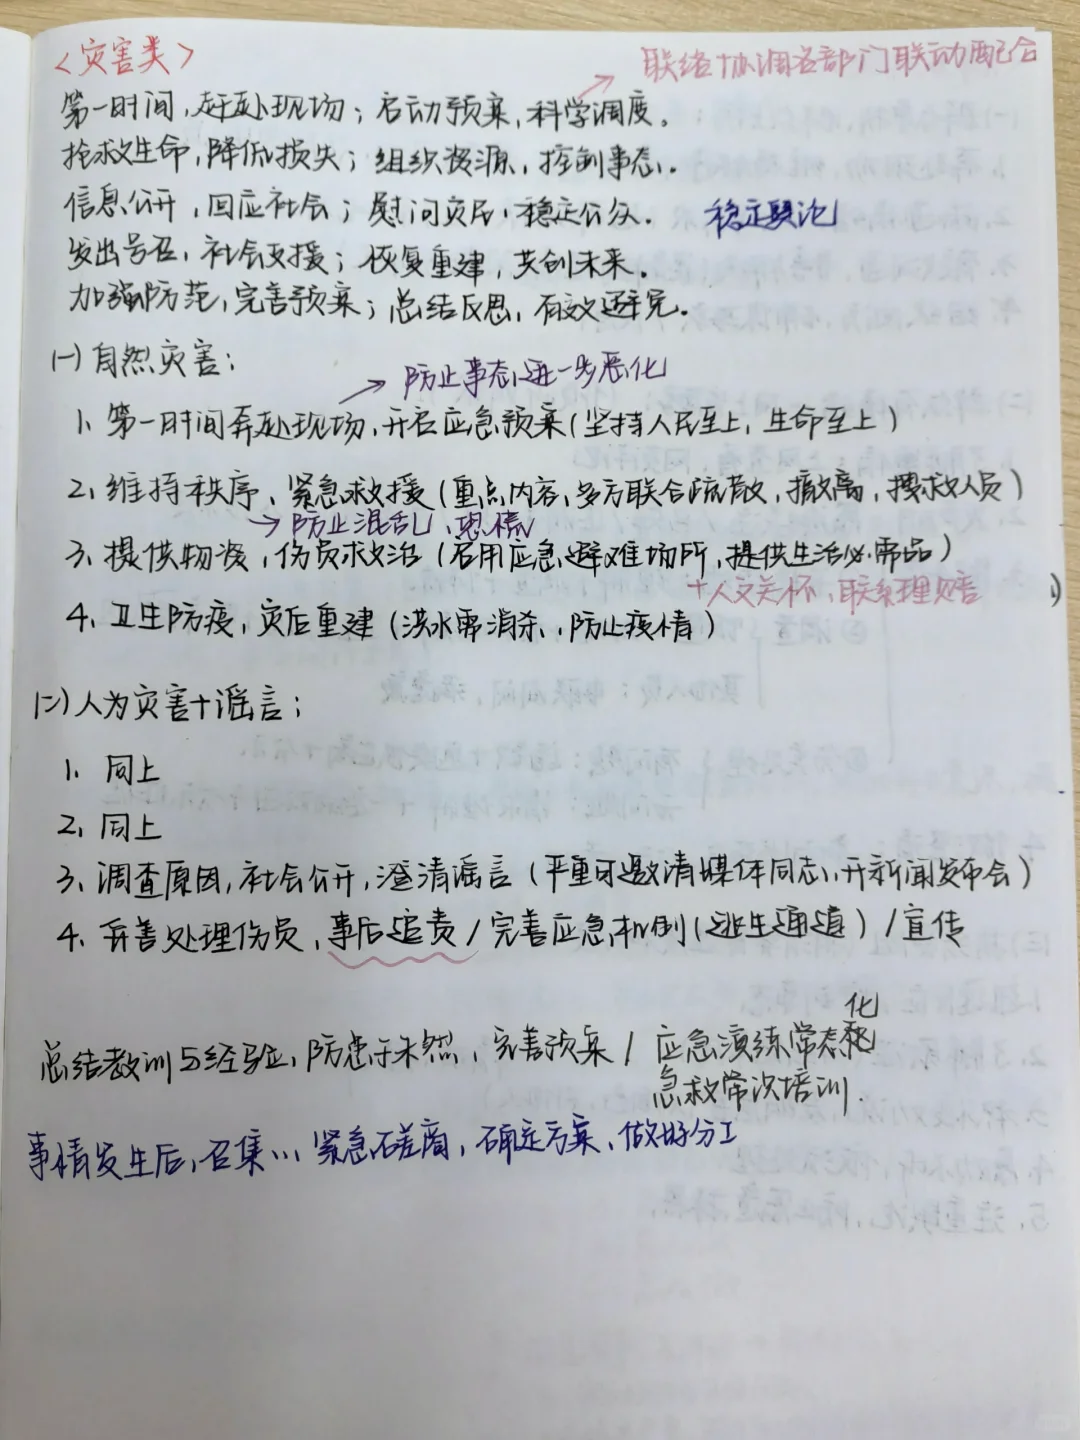 <灾害类>
联络+协调各部门联动配合
第一时间,赶赴现场;启动预案,科学调度。
抢救生命,降低损失;组织资源,控制事态。
信息公开,回应社会;慰问灾民,稳定公众. 稳定舆论
发出号召,社会支援;恢复重建,共创未来.
加强防范,完善预案;总结反思,有效避免.
(一)自然灾害:
→ 防止事态进一步恶化
1、第一时间奔赴现场,开启应急预案(坚持人民至上,生命至上)
2、维持秩序、紧急救援(重点内容,多方联合疏散,撤离,搜救人员)
→防止混乱、恐情
3、提供物资,伤员救治(启用应急避难场所,提供生活必需品)
+人文关怀、联系理赔
4、卫生防疫,灾后重建(洪水需消杀、防止疫情)
(二)人为灾害+谣言:
1、同上
2、同上
3、调查原因,社会公开,澄清谣言(严重可邀请媒体同志,开新闻发布会)
4、妥善处理伤员、事后追责/完善应急机制(逃生通道)/宣传
化
总结教训与经验,防患于未然,完善预案/应急演练常态
急救常识培训.
事情发生后,召集…紧急磋商,确定方案、做好分工